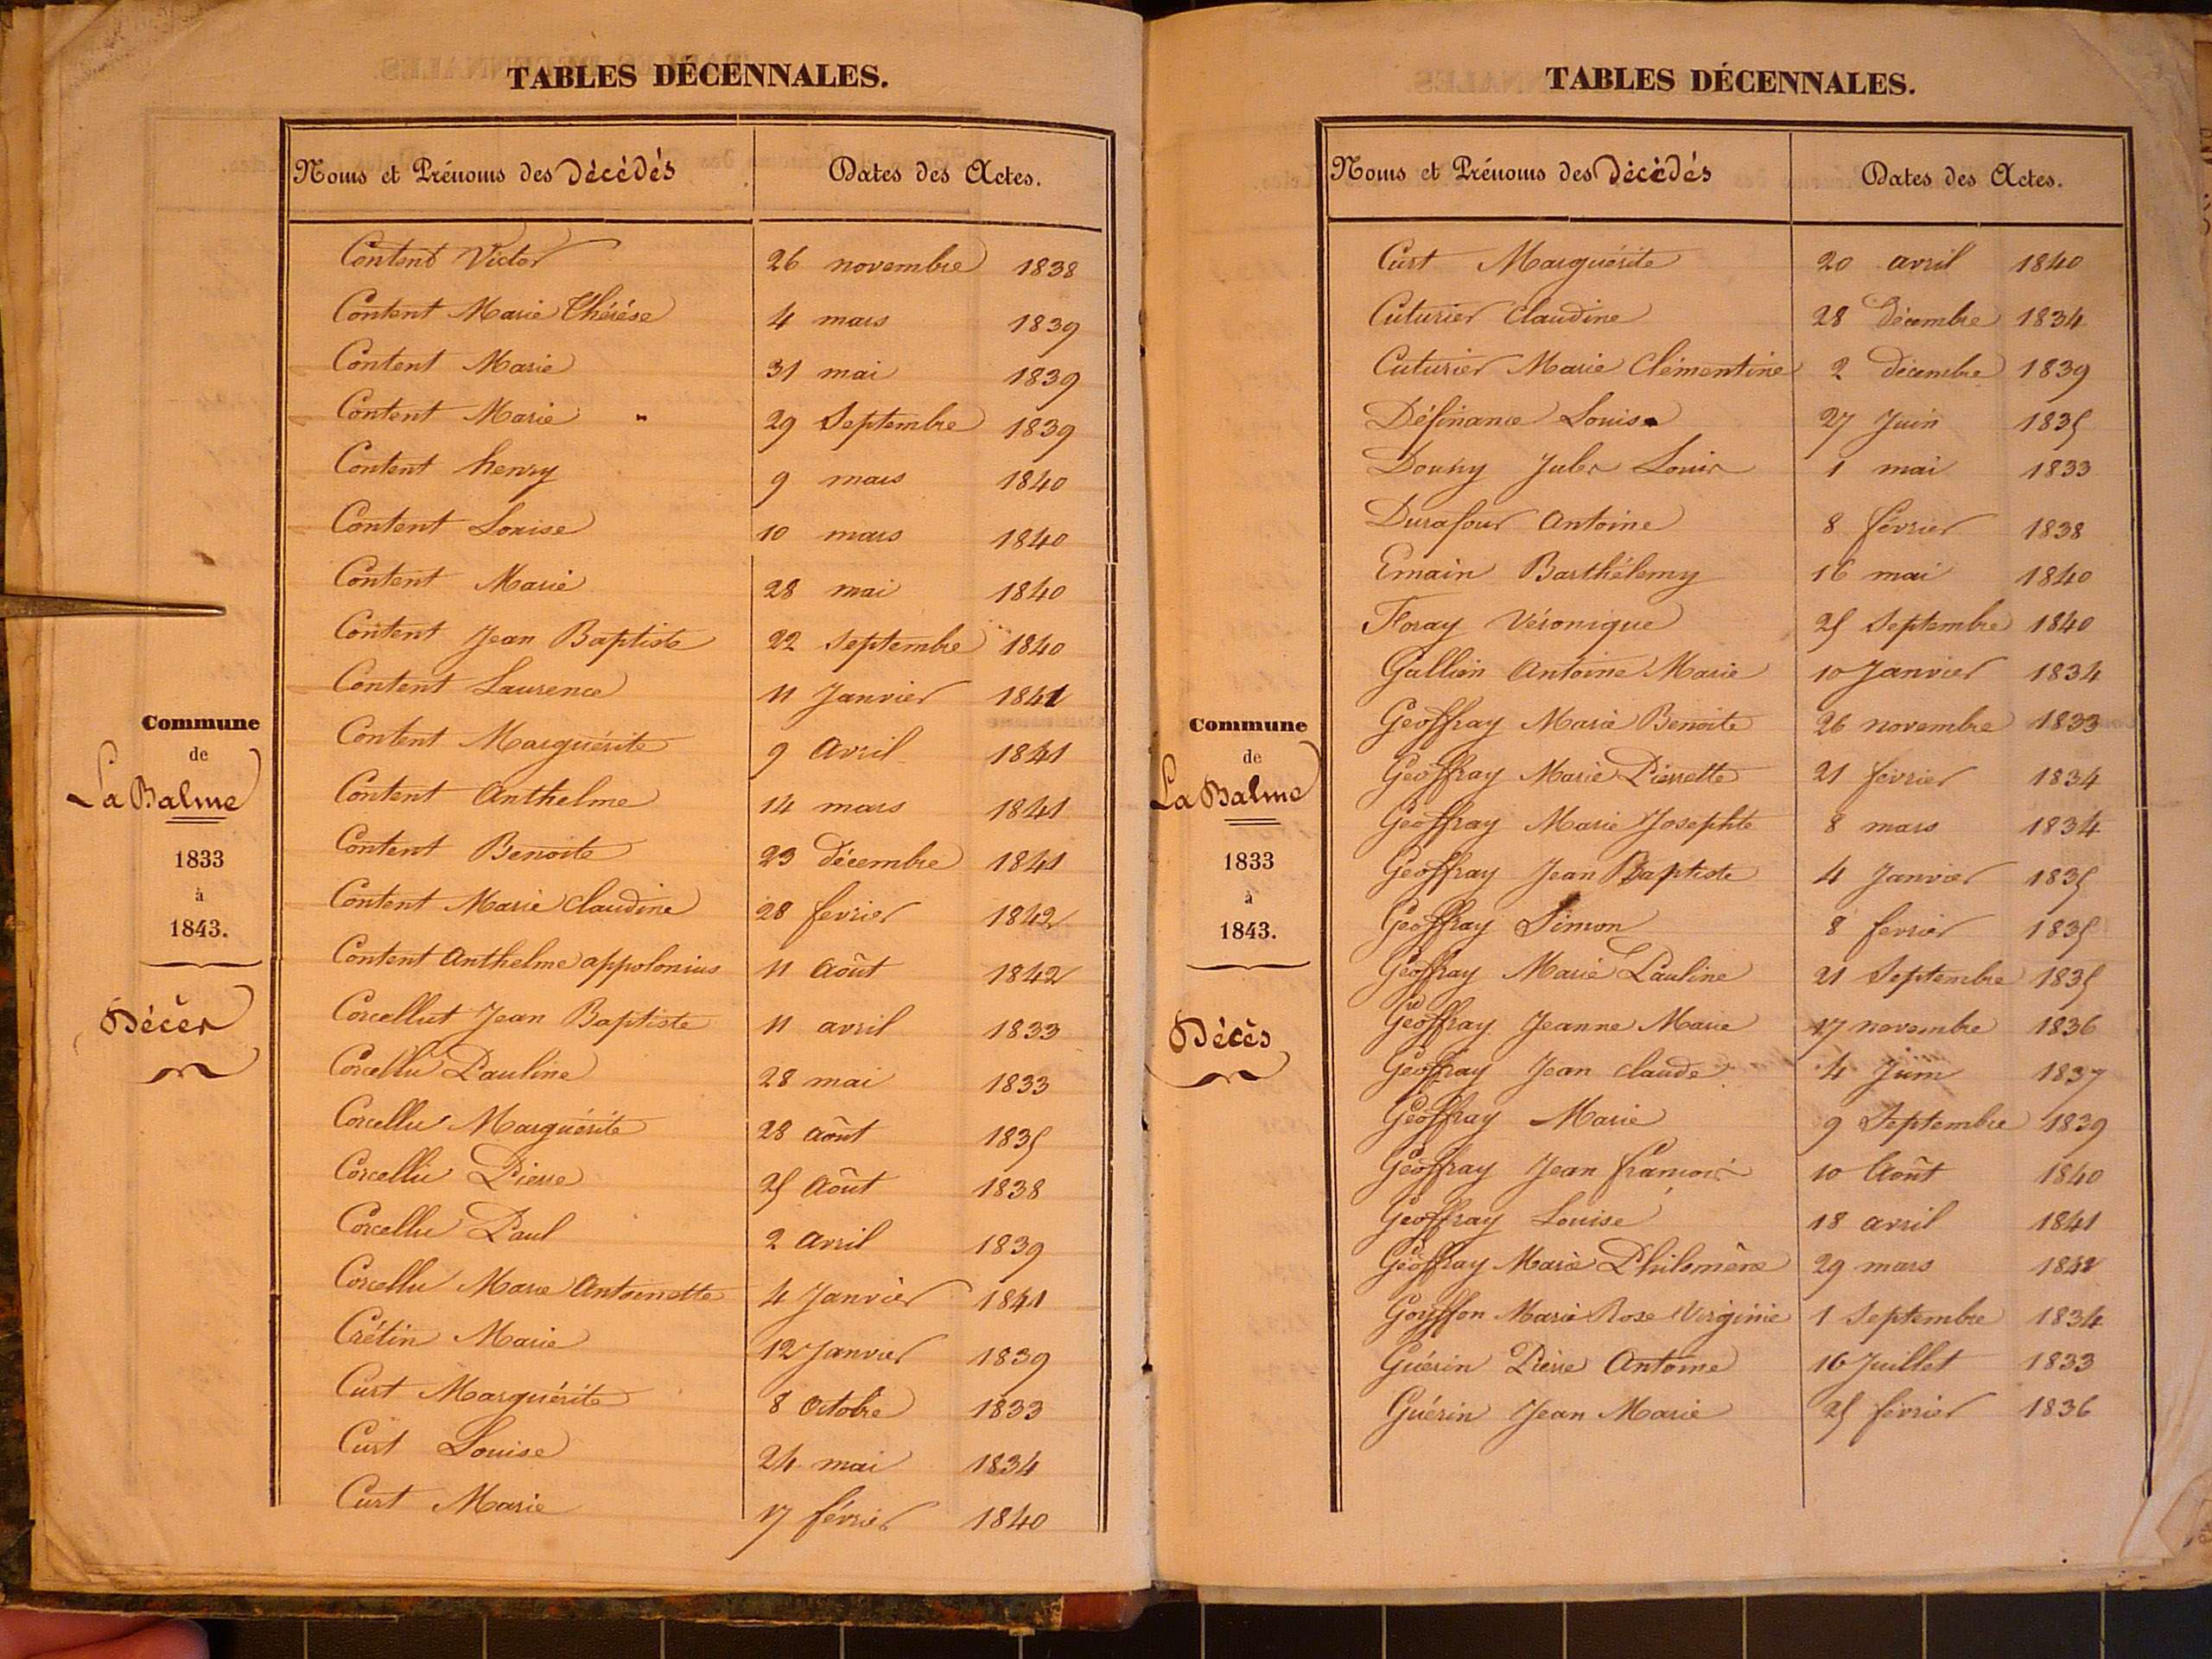 TABLES DÉCENNALES.
Noms et Prénoms des Décédés Dates des Actes.
Content Victor 26 novembre 1838
Content Marie Thérése 4 mars 1839
Content Marie 31 mai 1839
Content Marie 29 Septembre 1839
Content henry 9 mars 1840
Content Louise 10 mars 1840
Content Marie 28 mai 1840
Content Jean Baptiste 22 Septembre 1840
Content Laurence 11 Janvier 1841
Content Marguérite 9 Avril 1841
Content Anthelme 14 mars 1841
Content Benoite 23 décembre 1841
Content Marie Claudine 28 fevrier 1842
Content Anthelme appolonius 11 Août 1842
Corcellut Jean Baptiste 11 avril 1833
Corcellu Pauline 28 mai 1833
Corcellu Marguérite 28 Août 1835
Corcellu Pierre 25 Août 1838
Corcellu Paul 2 avril 1839
Corcellu Marie Antoinette 4 Janvier 1841
Crétin Marie 12 Janvier 1839
Curt Marguérite 8 Octobre 1833
Curt Louise 24 mai 1834
Curt Marie 17 février 1840
Commune
de
La Balme
1833
à
1843.
Décès
TABLES DÉCENNALES.
Noms et Prénoms des Décédés Dates des Actes.
Curt Marguérite 20 avril 1840
Cuturier Claudine 28 Décembre 1834
Cuturier Marie Clémentine 2 décembre 1839
Définance Louise 27 Juin 1835
Jules Louis 1 mai 1833
Durafour Antoine 8 février 1838
Emain Barthélemy 16 mai 1840
Floray Véronique 25 Septembre 1840
Gallien Antoine Marie 10 Janvier 1834
Geoffray Marie Benoite 26 novembre 1833
Geoffray Marie Pierrette 21 février 1834
Geoffray Marie Josephte 8 mars 1834
Geoffray Jean Baptiste 4 Janvier 1835
Geoffray Simon 8 fevrier 1835
Geoffray Marie Pauline 21 Septembre 1835
Geoffray Jeanne Marie 17 novembre 1836
Geoffray Jean Claude 4 Juin 1837
Geoffray Marie 9 Septembre 1839
Geoffray Jean françois 10 Août 1840
Geoffray Louise 18 avril 1841
Geoffray Marie Philomène 29 mars
Gouffon Marie Rose Virginie 1 Septembre 1834
Guérin Pierre Antoine 16 Juillet 1833
Guérin Jean Marie 25 février 1836
Commune
de
La Balme
1833
à
1843.
Décès